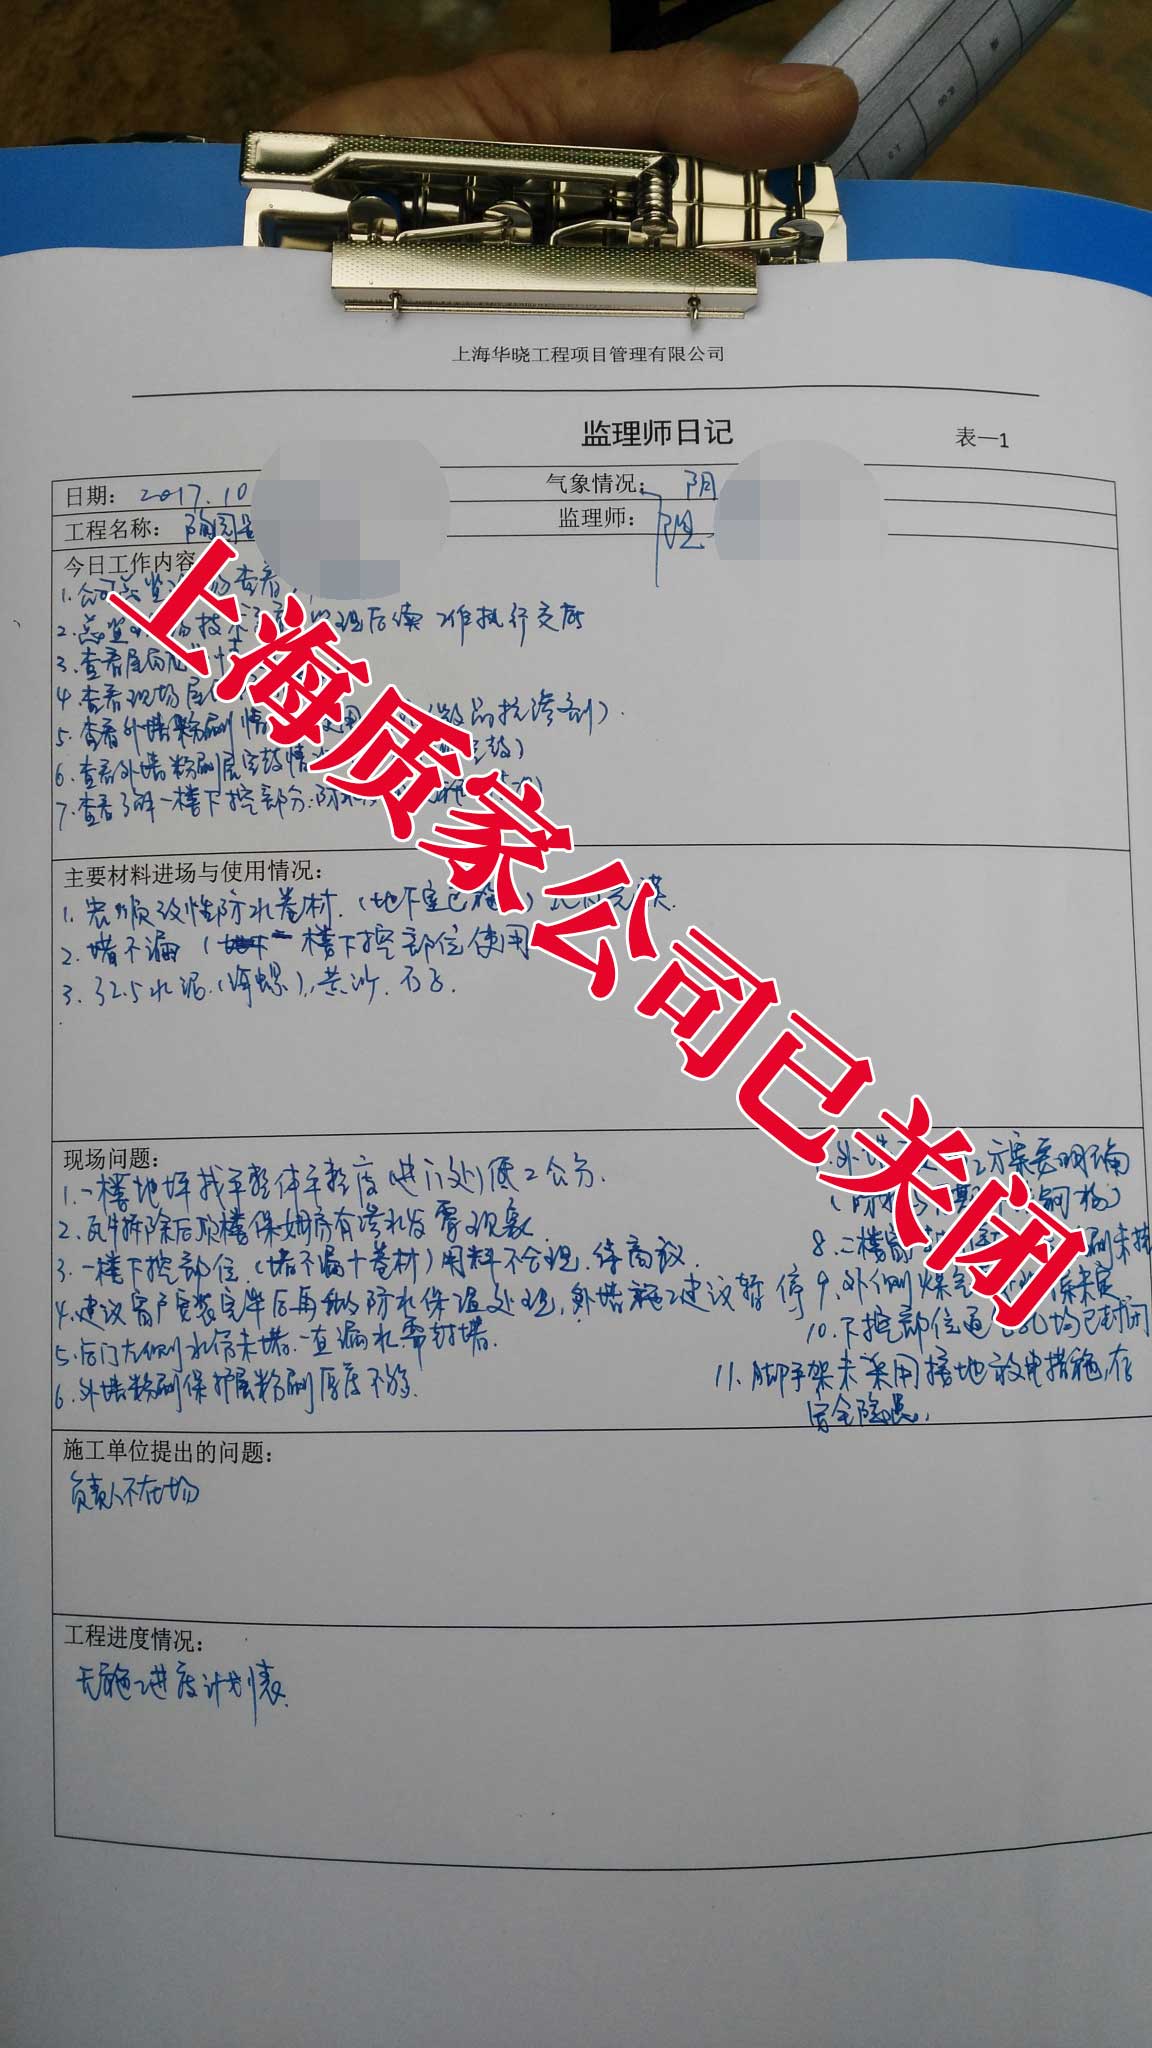 上海华晓工程项目管理有限公司
监理师日记
表—1
日期: 2017.10
气象情况: 阴
工程名称: 陶园
监理师:
今日工作内容
1.公司总监 查看
2.总监 技术 后续工作执行交底
3.查看屋面
4.查看现场屋
5.查看外墙粉刷情 使用 抗渗剂).
6.查看外墙粉刷层空鼓情 空鼓)
7.查看了解一楼下挖部分:防水
主要材料进场与使用情况:
1. 改性防水卷材.(地下室已施
2.堵不漏 一楼下挖部位使用
3. 32.5水泥.(海螺),黄沙.石子.
现场问题:
1.一楼地坪找平整体平整度 进门处低2公分.
2.瓦片拆除后顶楼保姆房有渗水发霉现象
3.一楼下挖部位.(堵不漏十卷材)用料不合理.待商议.
4.建议窗户安装完毕后再做防水保温处理,外墙施工建议暂停
5.后门左侧水管未堵.一直漏水需封堵.
6.外墙粉刷保护层粉刷厚度不够.
方案要明确
8.二楼窗
9.外侧煤气
10.下挖部位通 孔均已封闭
11.脚手架未采用接地放电措施,存
安全隐患.
施工单位提出的问题:
负责人不在场
工程进度情况:
无施工进度计划表.
上海质家公司已关闭